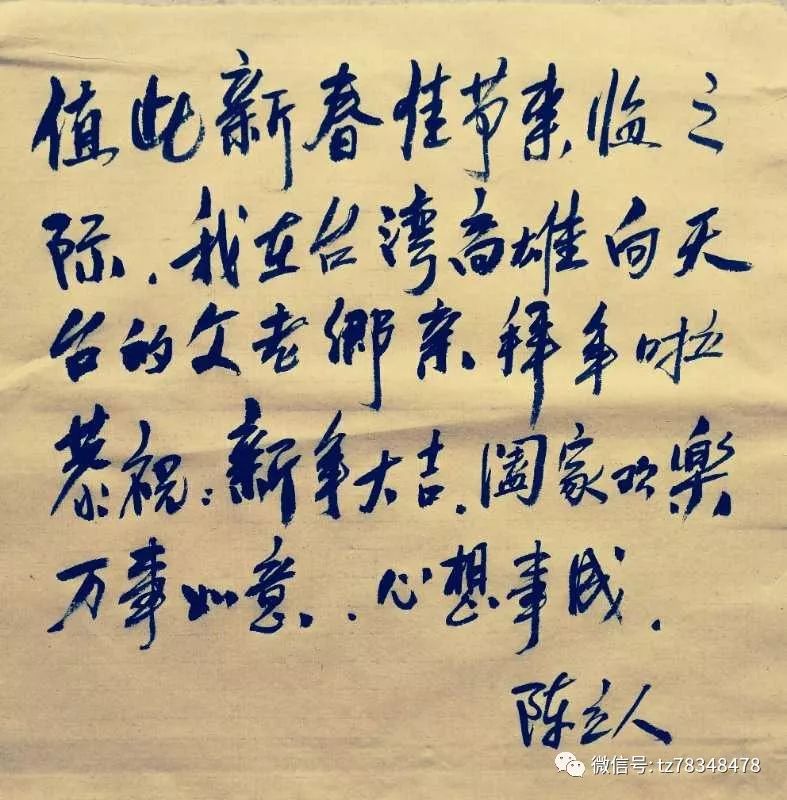 值此新春佳节来临之
际、我在台湾高雄向天
台的父老鄉亲拜年啦
恭祝:新年大吉、阖家欢樂
万事如意、心想事成.
陈立人
微信号: tz78348478